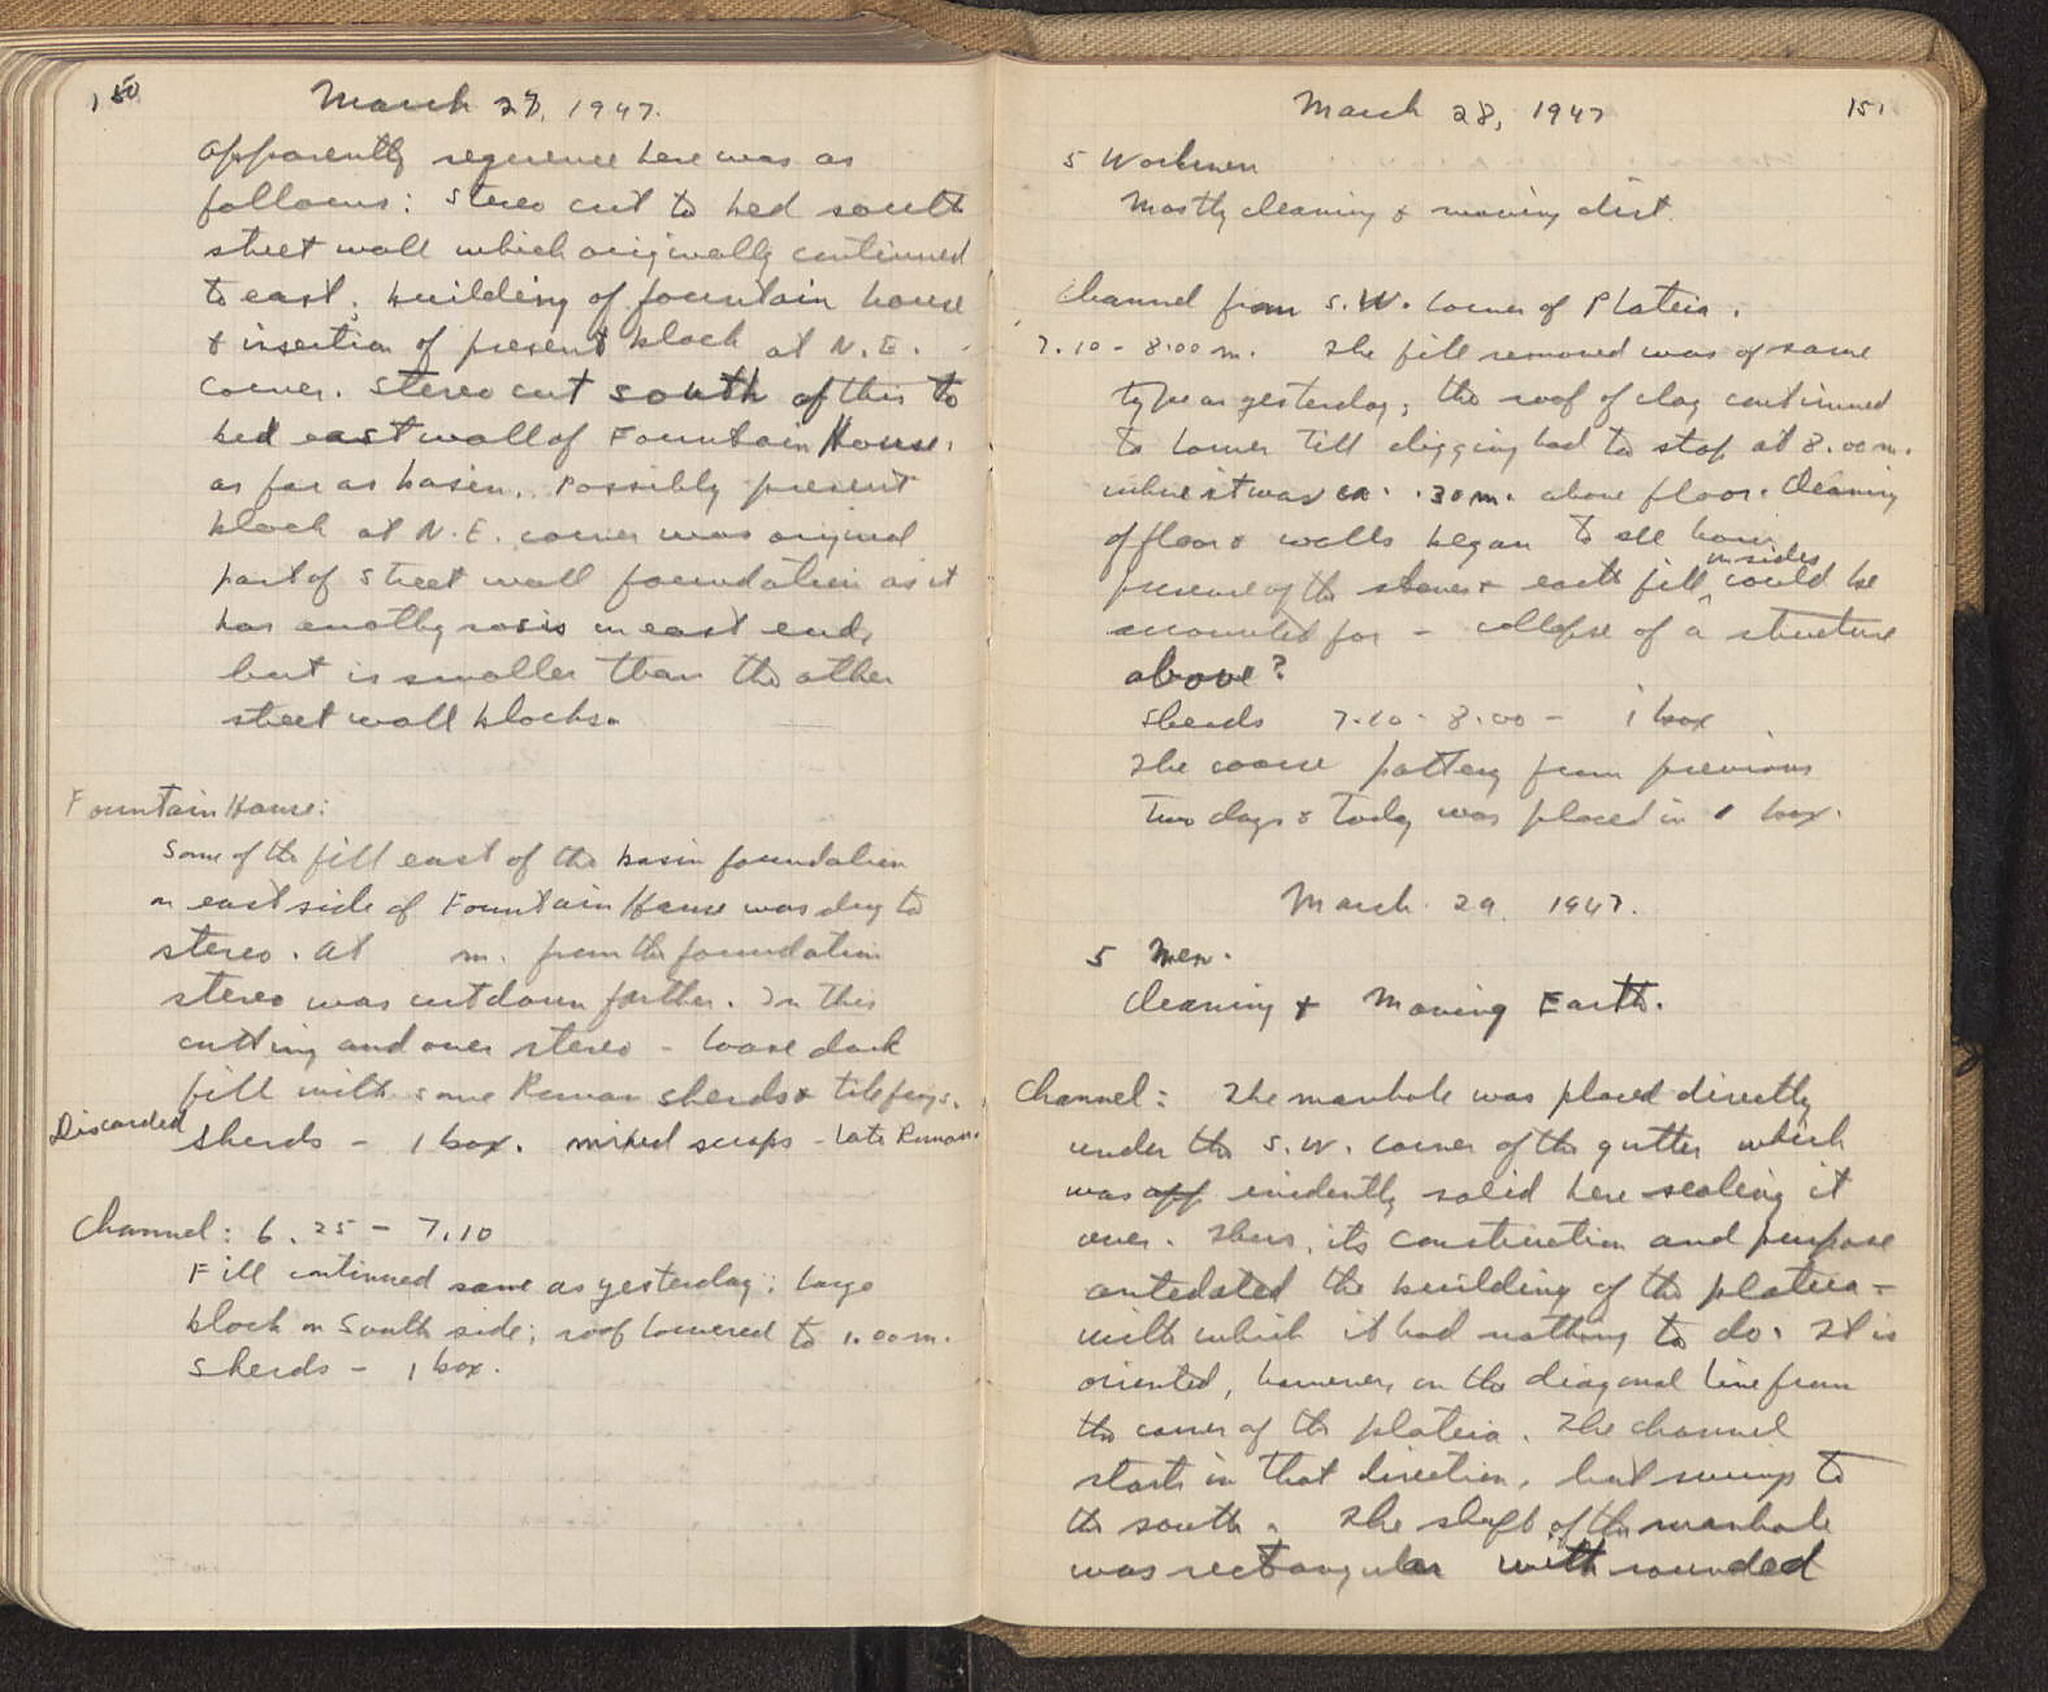 150
March 27, 1947.
Apparently sequence here was as
follows: Stereo cut to bed south
street wall which originally continued
to east; building of fountain house
& insertion of present block at N.E.
corner. Stereo cut south of this to
bed east wall of Fountain House,
as far as basin. Possibly present
block at N.E. corner was original
part of street wall foundation as it
has anathyrosis on east end,
but is smaller than the other
street wall blocks.
Fountain House:
Some of the fill east of the basin foundation
on east side of Fountain House was dug to
stereo. At m. from the foundation
stereo was cut down further. In this
cutting and over stereo - loose dark
fill with some Roman sherds & tile frags.
Discarded
Sherds - 1 box. mixed scraps - late Roman.
Channel: 6.25 - 7.10
Fill continued same as yesterday; large
block on South side; roof lowered to 1.00 m.
Sherds - 1 box.
March 28, 1947
151
5 Workmen
Mostly cleaning & moving dirt.
Channel from S.W. Corner of Plateia.
7.10 - 8.00 m. The fill removed was of same
type as yesterday; the roof of clay continued
to lower till digging had to stop at 8.00 m.
where it was ca. .30 m. above floor. Cleaning
of floor & walls began to see how
presence of the stones & earth fill insides could be
accounted for - collapse of a structure
above?
Sherds 7.10 - 8.00 - 1 box
The coarse pottery from previous
two days & today was placed in 1 box.
March 29, 1947.
5 Men.
Cleaning & Moving Earth.
Channel: The manhole was placed directly
under the S.W. corner of the gutter which
was app. evidently solid here sealing it
over. Thus, its construction and purpose
antedated the building of the plateia -
with which it had nothing to do. It is
oriented, however, on the diagonal line from
the corner of the plateia. The channel
starts in that direction, but swings to
the south. The shaft of the manhole
was rectangular with rounded